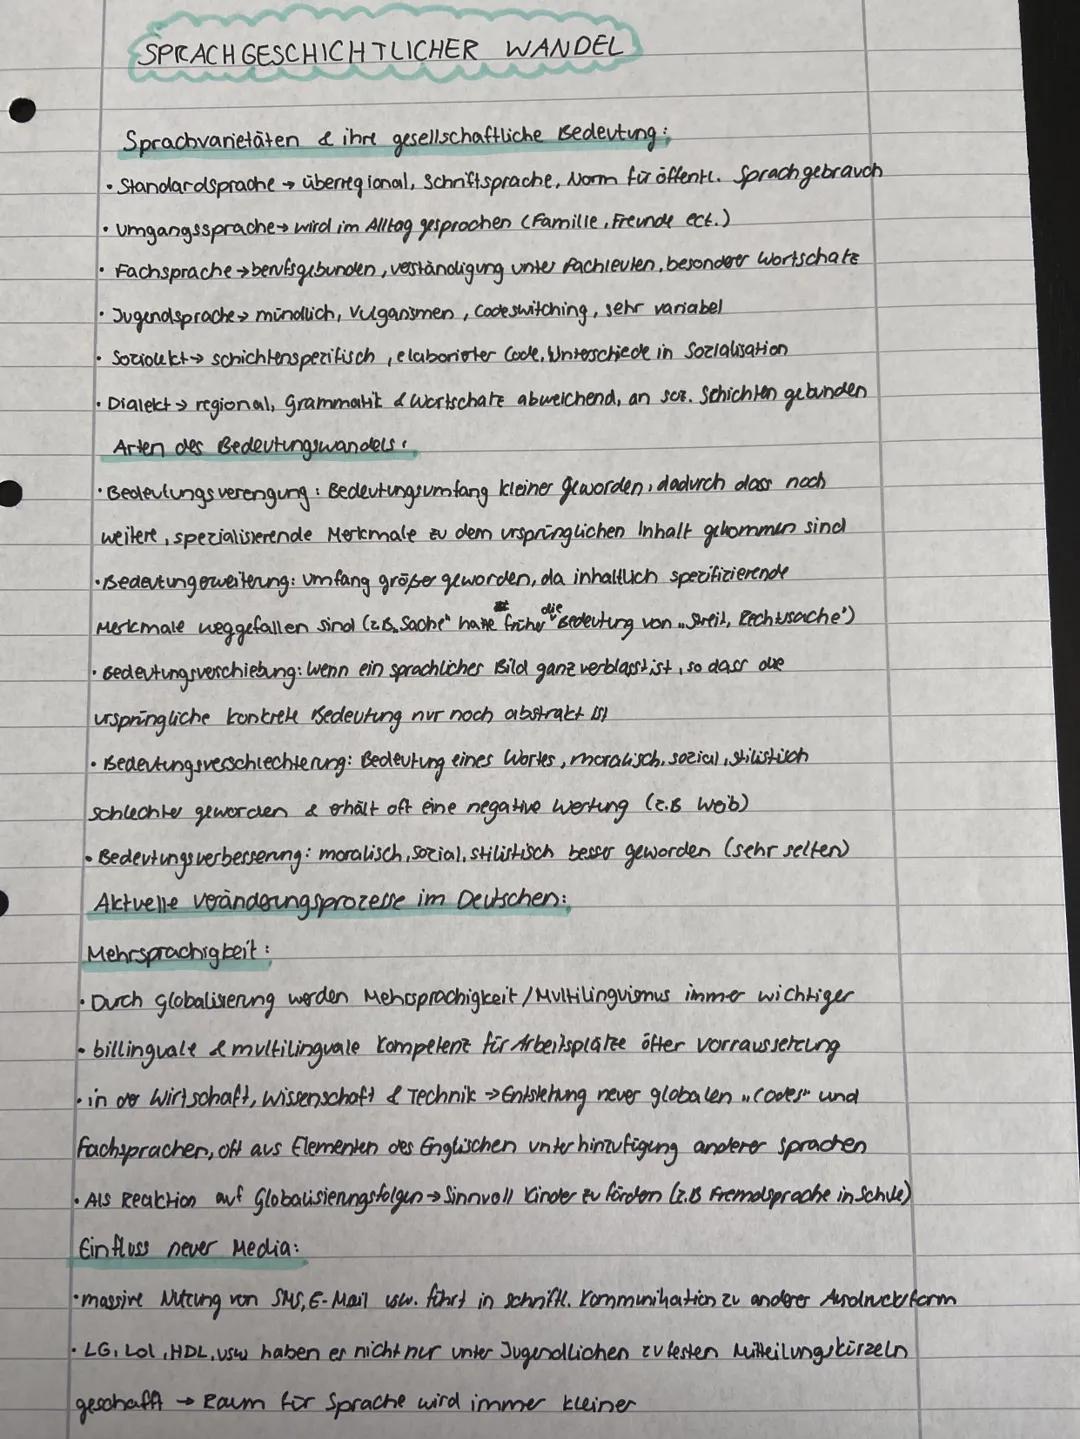 SPRACHGESCHICHTLICHER WANDEL
Sprachvarietäten & ihre gesellschaftliche Bedeutung:
• Standardsprache → überregional, Schriftsprache, Norm für öffentl. Sprachgebrauch
• Umgangssprache → wird im Alltag gesprochen (Familie, Freunde ect.)
• Fachsprache → berufsgebunden, verständigung unter Fachleuten, besonderer Wortschatz
• Jugendsprache → mündlich, Vulgarismen, Codeswitching, sehr variabel
• Soziolekt → schichtenspezifisch, elaborierter Code, Unterschiede in Sozialisation
• Dialekt → regional, Grammatik & Wortschatz abweichend, an soz. Schichten gebunden
Arten des Bedeutungswandels:
• Bedeutungsverengung: Bedeutungsumfang kleiner geworden, dadurch dass noch
weitere, spezialisierende Merkmale zu dem ursprünglichen Inhalt gekommen sind
• Bedeutungerweiterung: Umfang größer geworden, da inhaltlich spezifizierende
Merkmale weggefallen sind (z.B. „Sache" hatte früher die Bedeutung von „Streit, Rechtssache')
• Bedeutungsverschiebung: Wenn ein sprachliches Bild ganz verblasst ist, so dass die
ursprüngliche konkrete Bedeutung nur noch abstrakt ist
• Bedeutungsverschlechterung: Bedeutung eines Wortes, moralisch, sozial, stilistisch
schlechter geworden & erhält oft eine negative Wertung (z.B Weib)
• Bedeutungsverbesserung: moralisch, sozial, stilistisch besser geworden (sehr selten)
Aktuelle Veränderungsprozesse im Deutschen:
Mehrsprachigkeit:
• Durch Globalisierung werden Mehrsprachigkeit/Multilinguismus immer wichtiger
• billinguale & multilinguale Kompetenz für Arbeitsplätze öfter Vorraussetzung
• in der Wirtschaft, Wissenschaft & Technik → Entstehung neuer globalen „Codes" und
Fachsprachen, oft aus Elementen des Englischen unter hinzufügung anderer Sprachen
• Als Reaktion auf Globalisierungsfolgen → Sinnvoll Kinder zu fördern (z.B Fremdsprache in Schule)
Einfluss neuer Media:
• massive Nutzung von SMS, E-Mail usw. führt in schriftl. Kommunikation zu anderer Ausdrucksform
• LG, Lol, HDL, usw haben es nicht nur unter Jugendlichen zu festen Mitteilungskürzeln
geschafft → Raum für Sprache wird immer kleiner